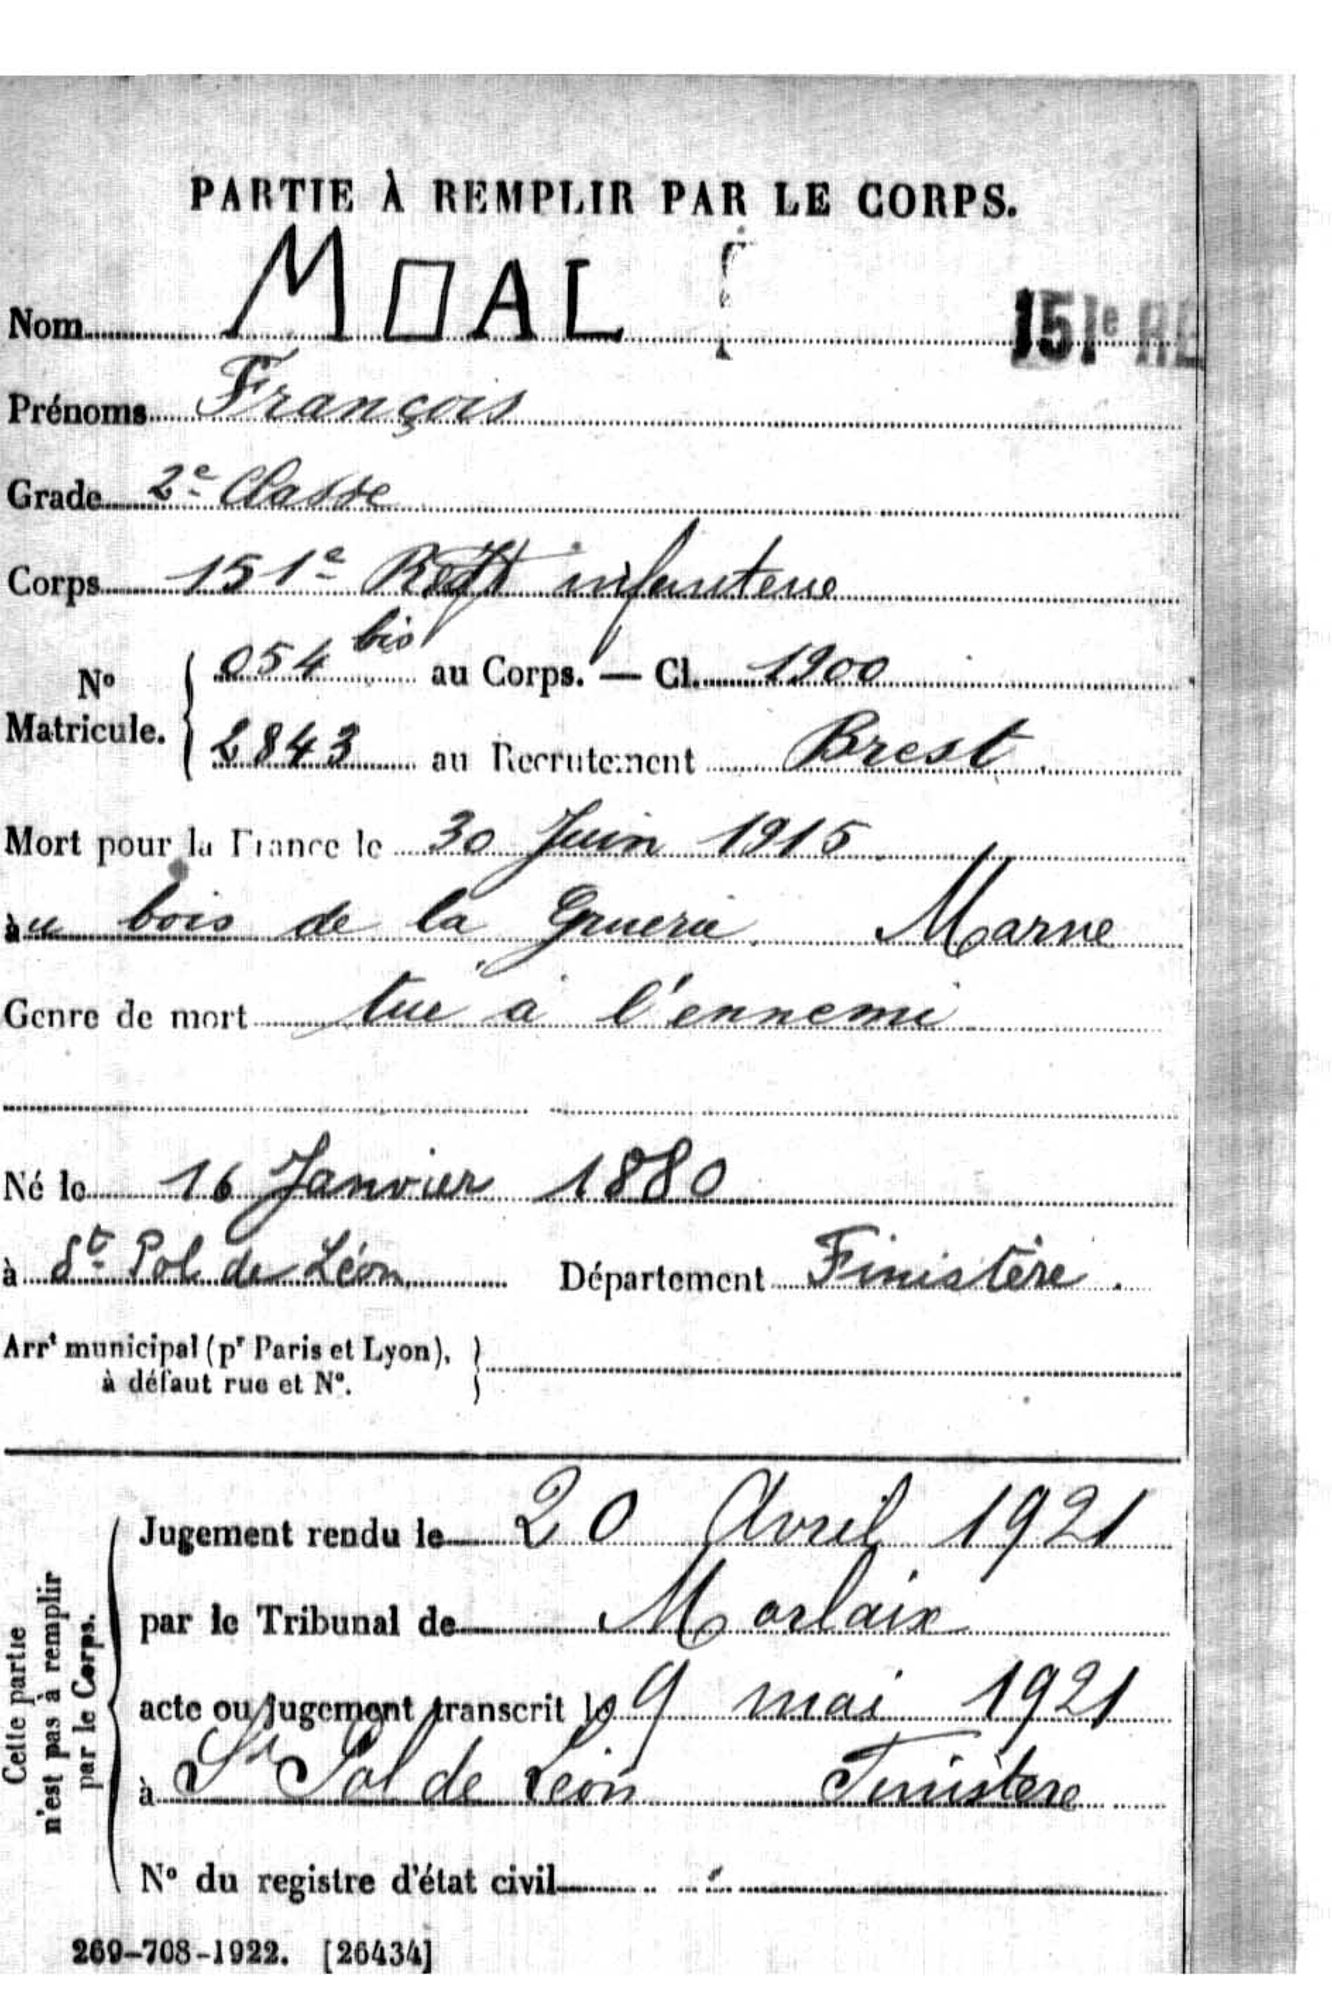 PARTIE À REMPLIR PAR LE CORPS.
Nom MOAL
151e RE
Prénoms François
Grade 2e Classe
Corps 151e Regt infanterie
No Matricule. 054 bis au Corps. — Cl. 1900
2843 au Recrutement Brest
Mort pour la France le 30 Juin 1915
au bois de la Gruerie Marne
Genre de mort tué à l'ennemi
Né le 16 Janvier 1880
à St Pol de Léon Département Finistère.
Arrt municipal (pr Paris et Lyon),
à défaut rue et No.
Cette partie
n'est pas à remplir
par le Corps.
Jugement rendu le 20 Avril 1921
par le Tribunal de Morlaix
acte ou jugement transcrit le 9 mai 1921
à St Pol de Léon Finistere
No du registre d'état civil
269-708-1922. [26434]